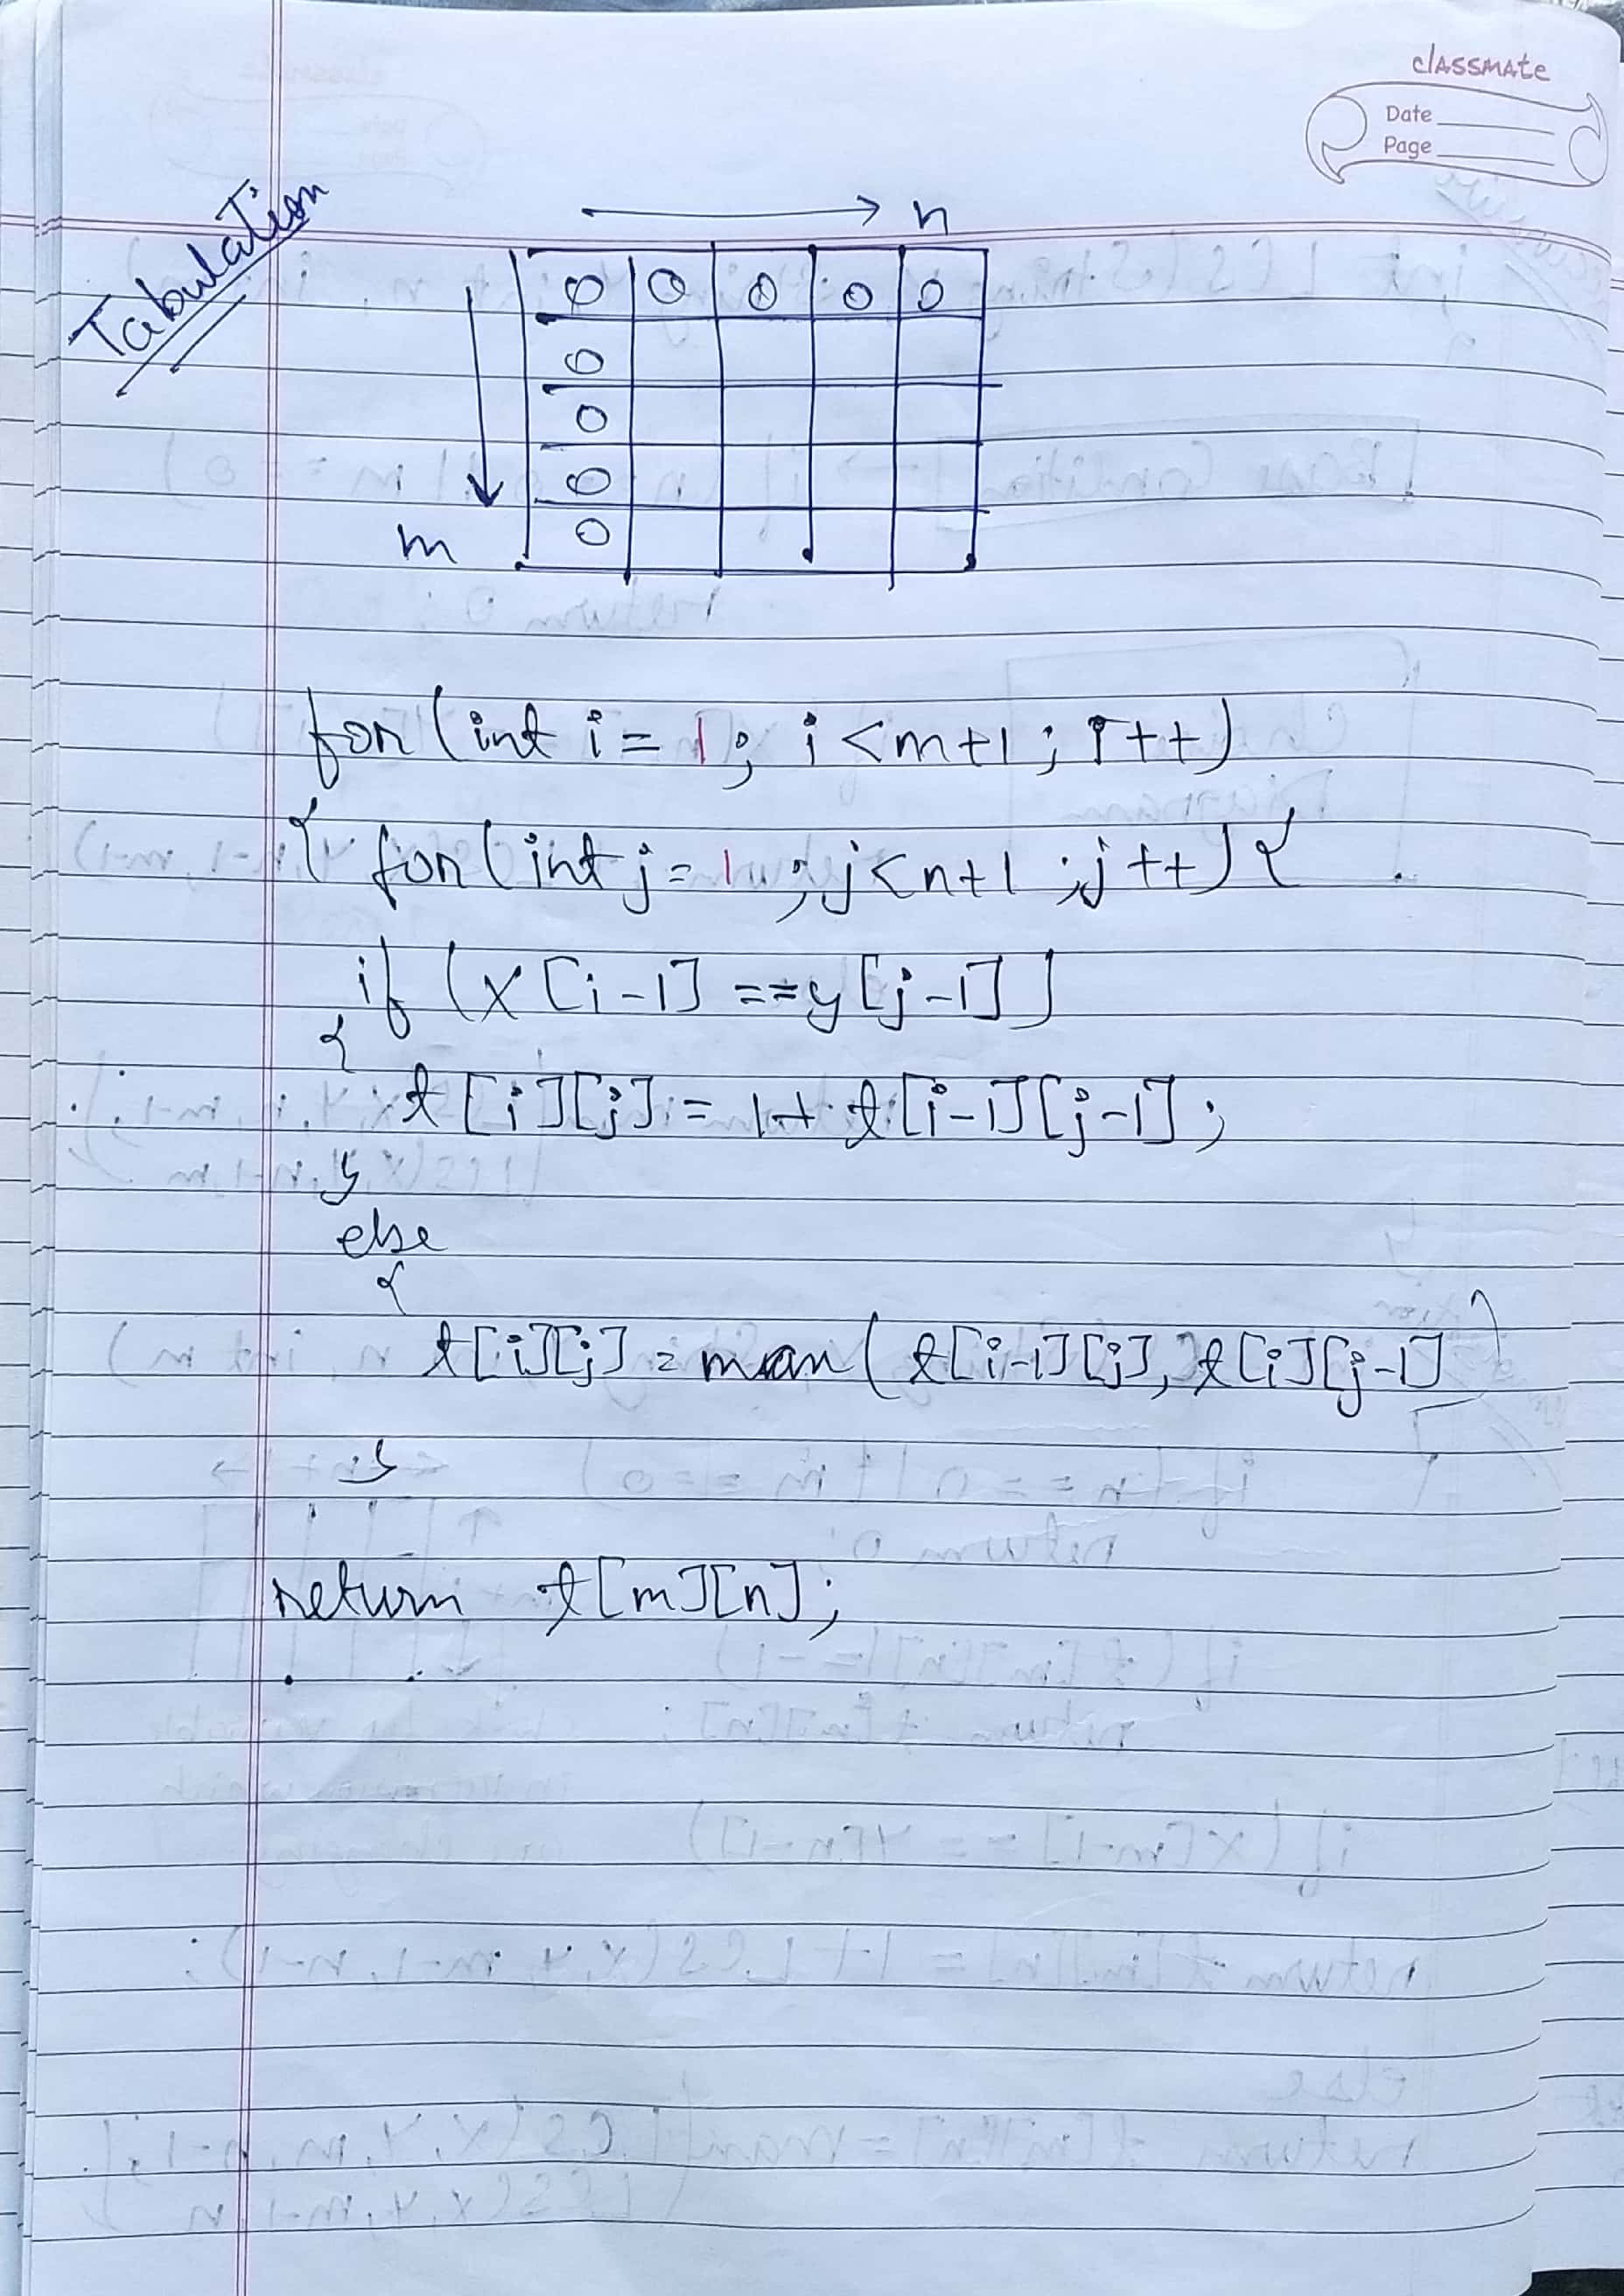 classmate
Date
Page
Tabulation
n
0 0 0 0 0
0
0
0
0
m
for (int i = 1; i < m+1; i++)
{ for (int j = 1; j < n+1; j++) {
if (x[i-1] == y[j-1])
{
t[i][j] = 1 + t[i-1][j-1];
}
else
{
t[i][j] = max(t[i-1][j], t[i][j-1])
}
return t[m][n];